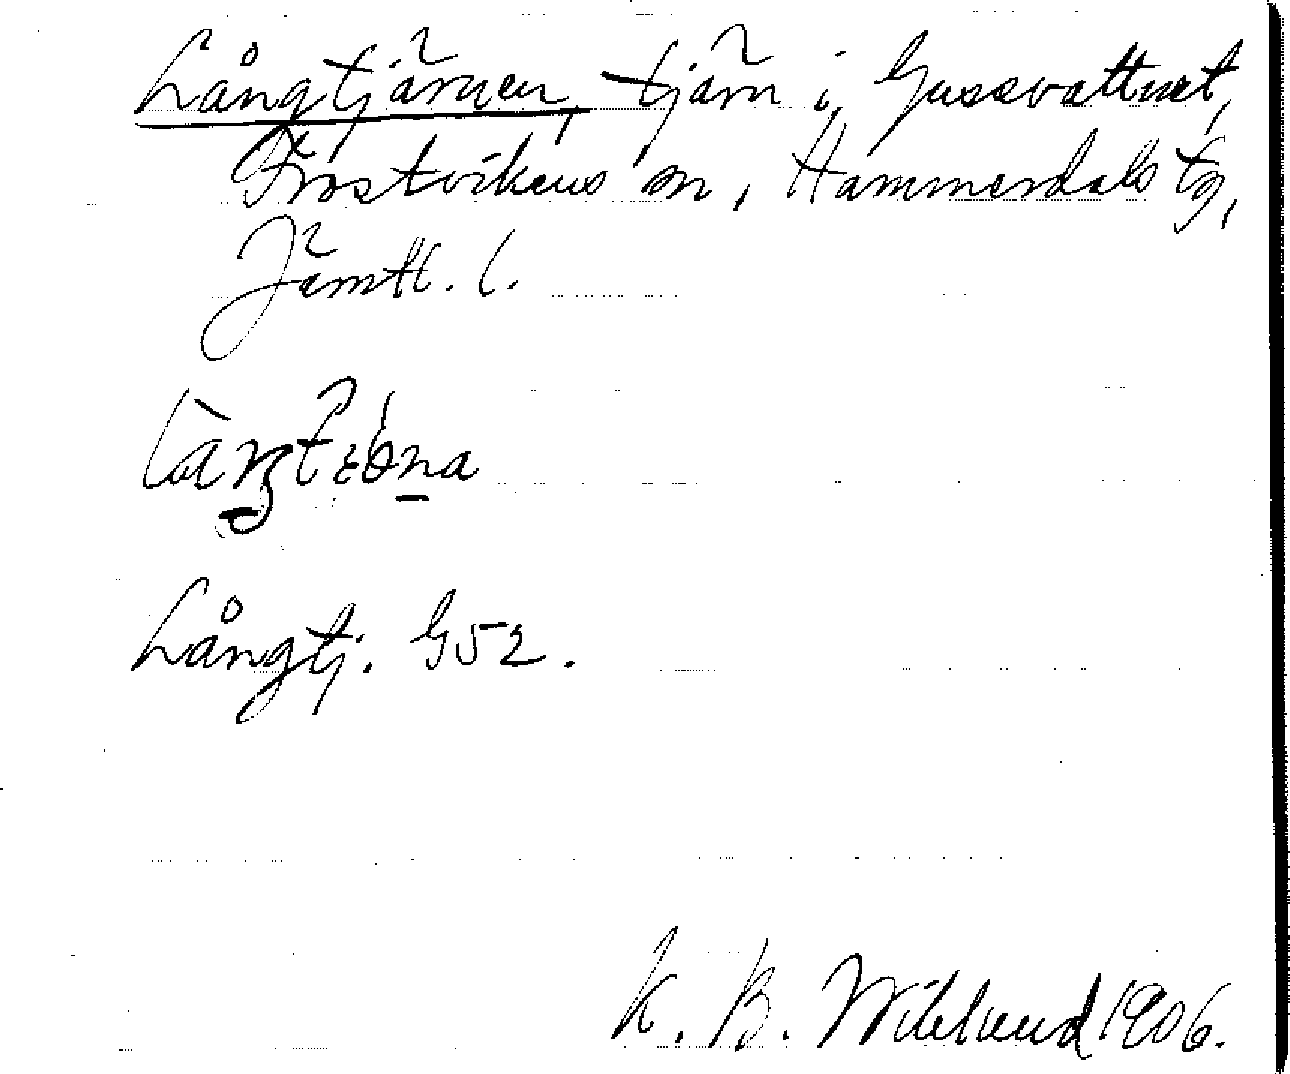 Långtjärnen, tjärn i Gussvattnet,
Frostvikens sn, Hammerdals tg,
Jämtl. l.
Långtj. G52.
K. B. Wiklund 1906.